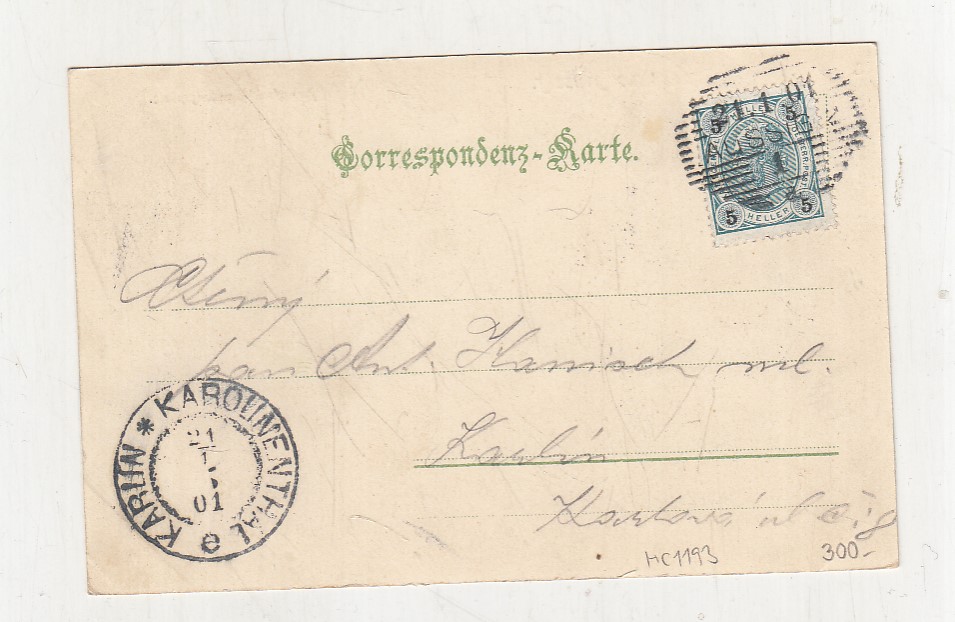 Correspondenz-Karte.
21 1 01
5 HELLER 5
5 HELLER 5
Ctěný
pan Ant. Kanisch ml.
Karlín
Karlova ul
KARLIN * KAROLINENTHAL
21
1
01
e
MC1193
300-